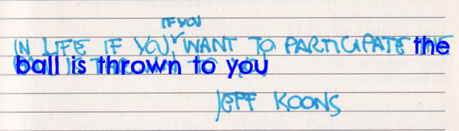 IF YOU
IN LIFE IF YOU WANT TO PARTICIPATE the
ball is thrown to you
JEFF KOONS